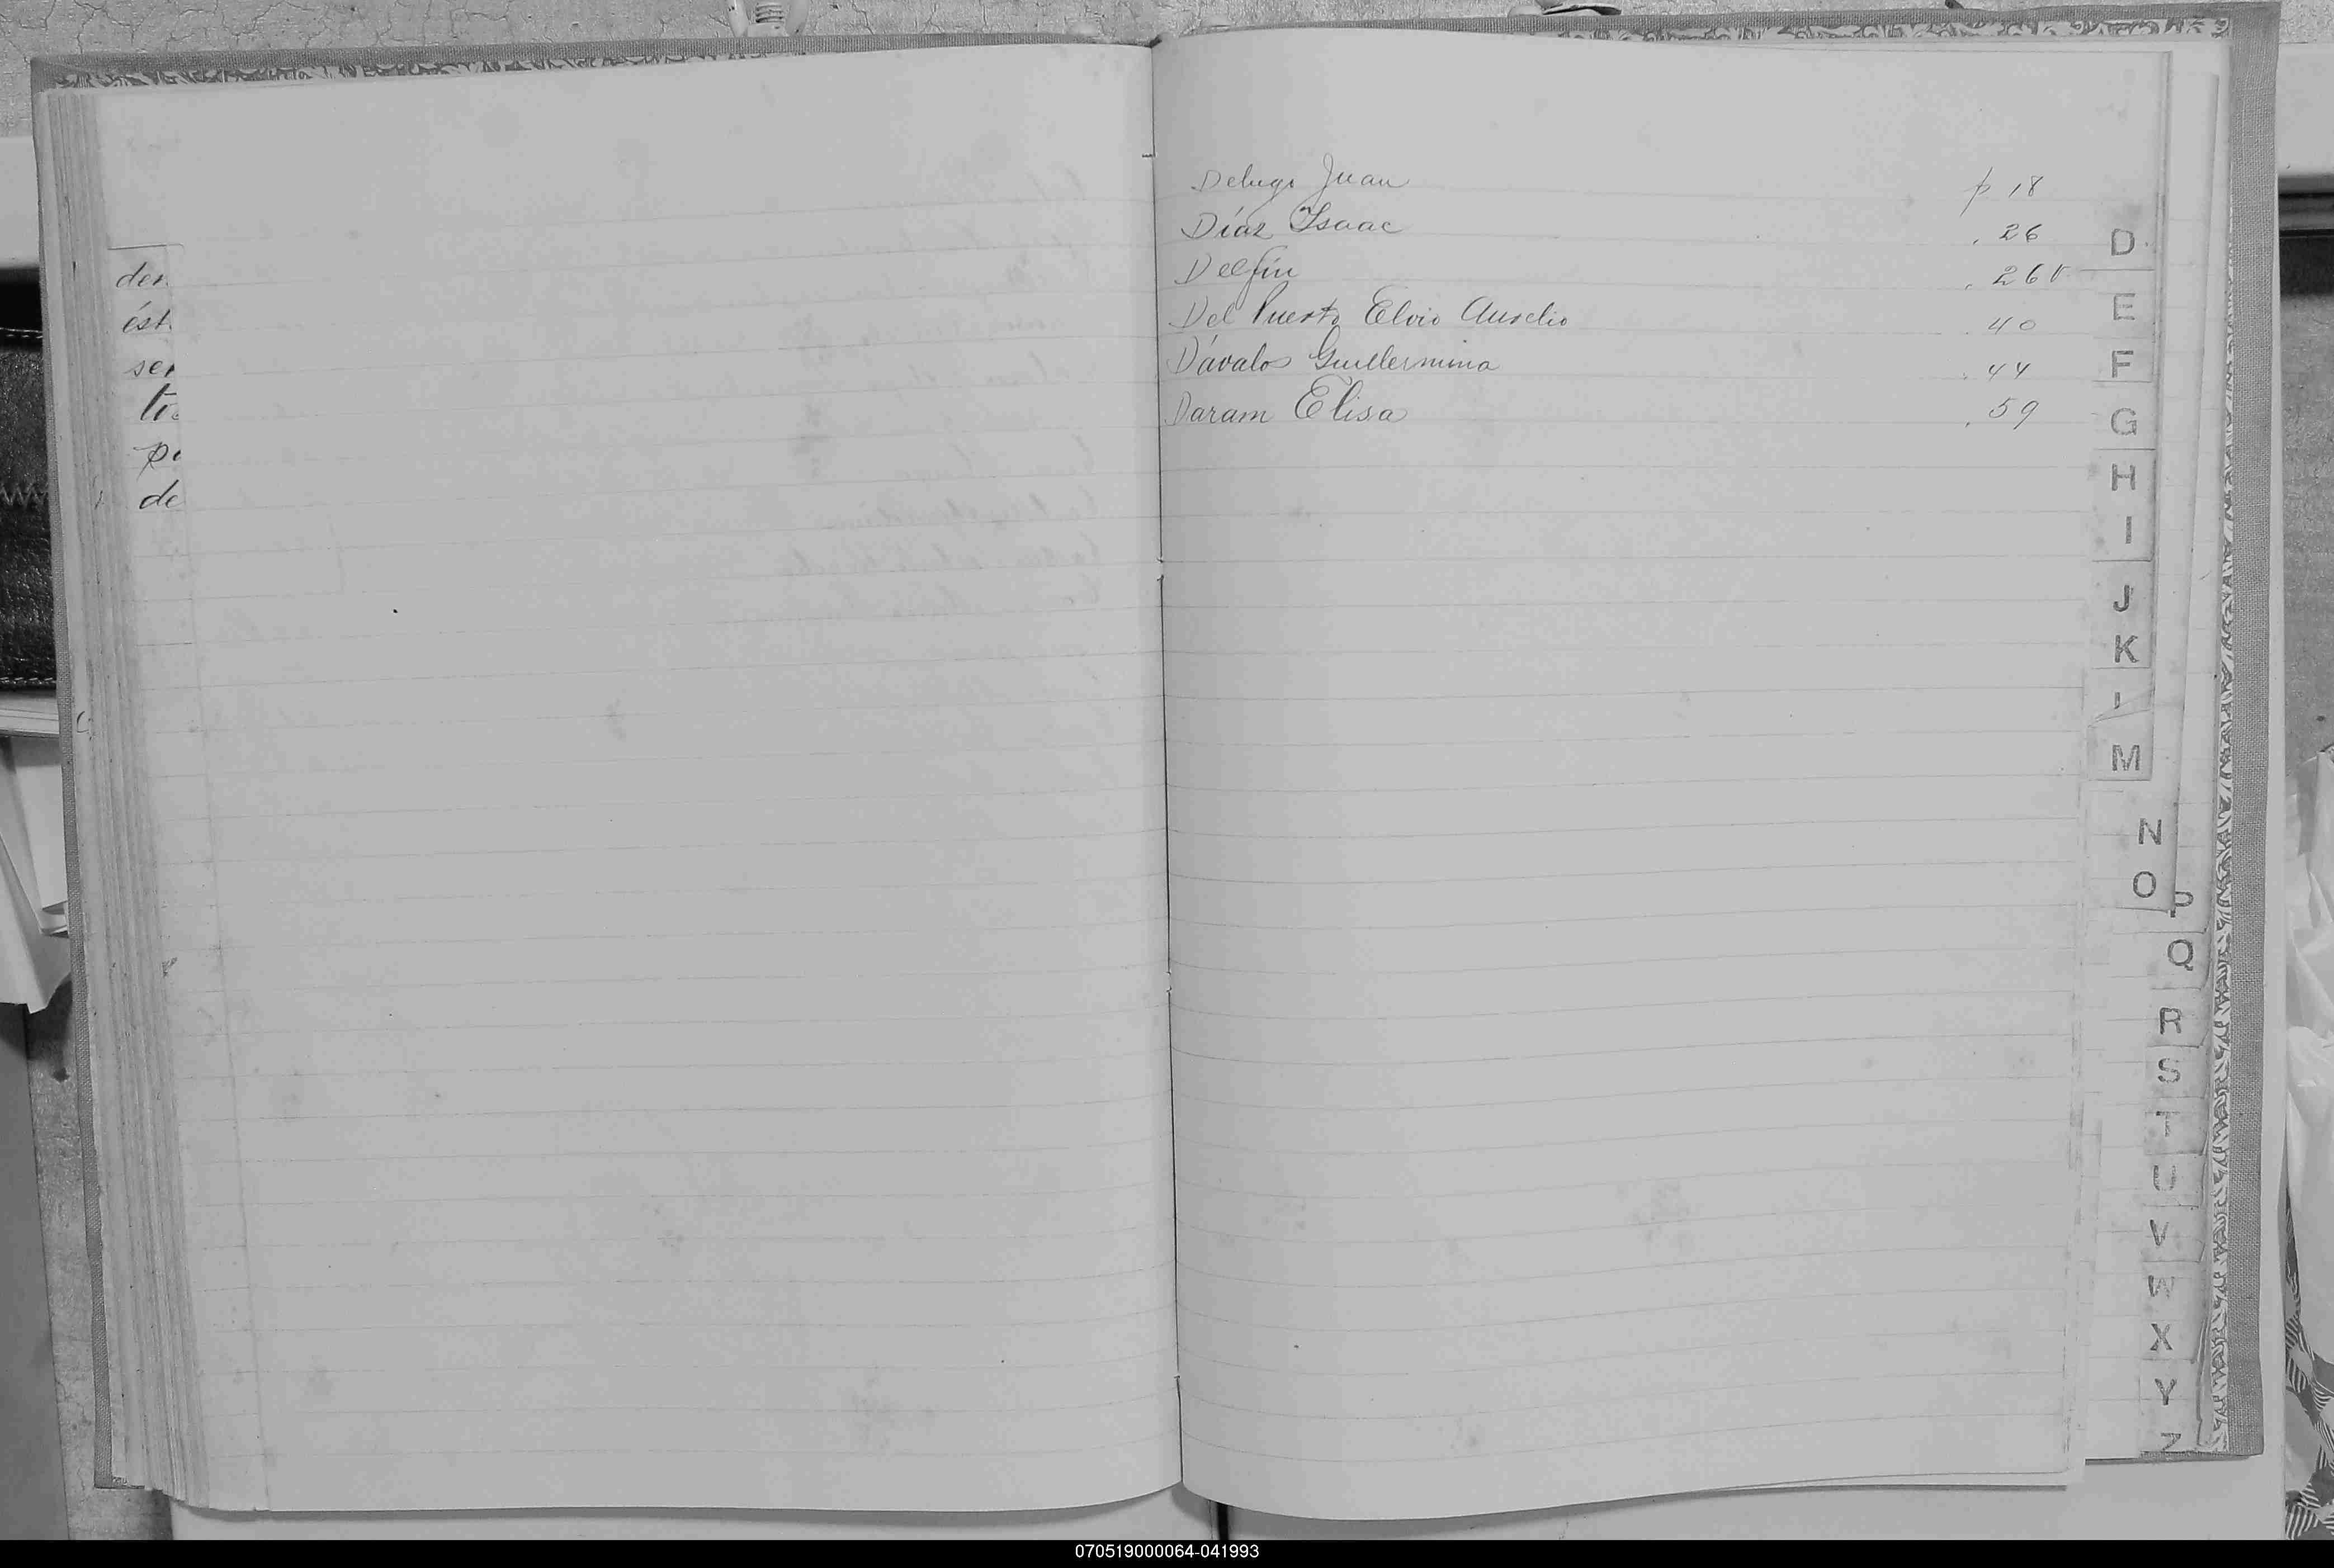 der
ést
ser
tic
po
de
Delugo Juan p 18
Díaz Isaac . 26
Delfín . 26 V
Del Puerto Elvio Aurelio . 40
Dávalos Guillermina . 44
Daram Elisa . 59
D
E
F
G
H
I
J
K
M
N
O
P
Q
R
S
T
U
V
W
X
Y
Z
070519000064-041993